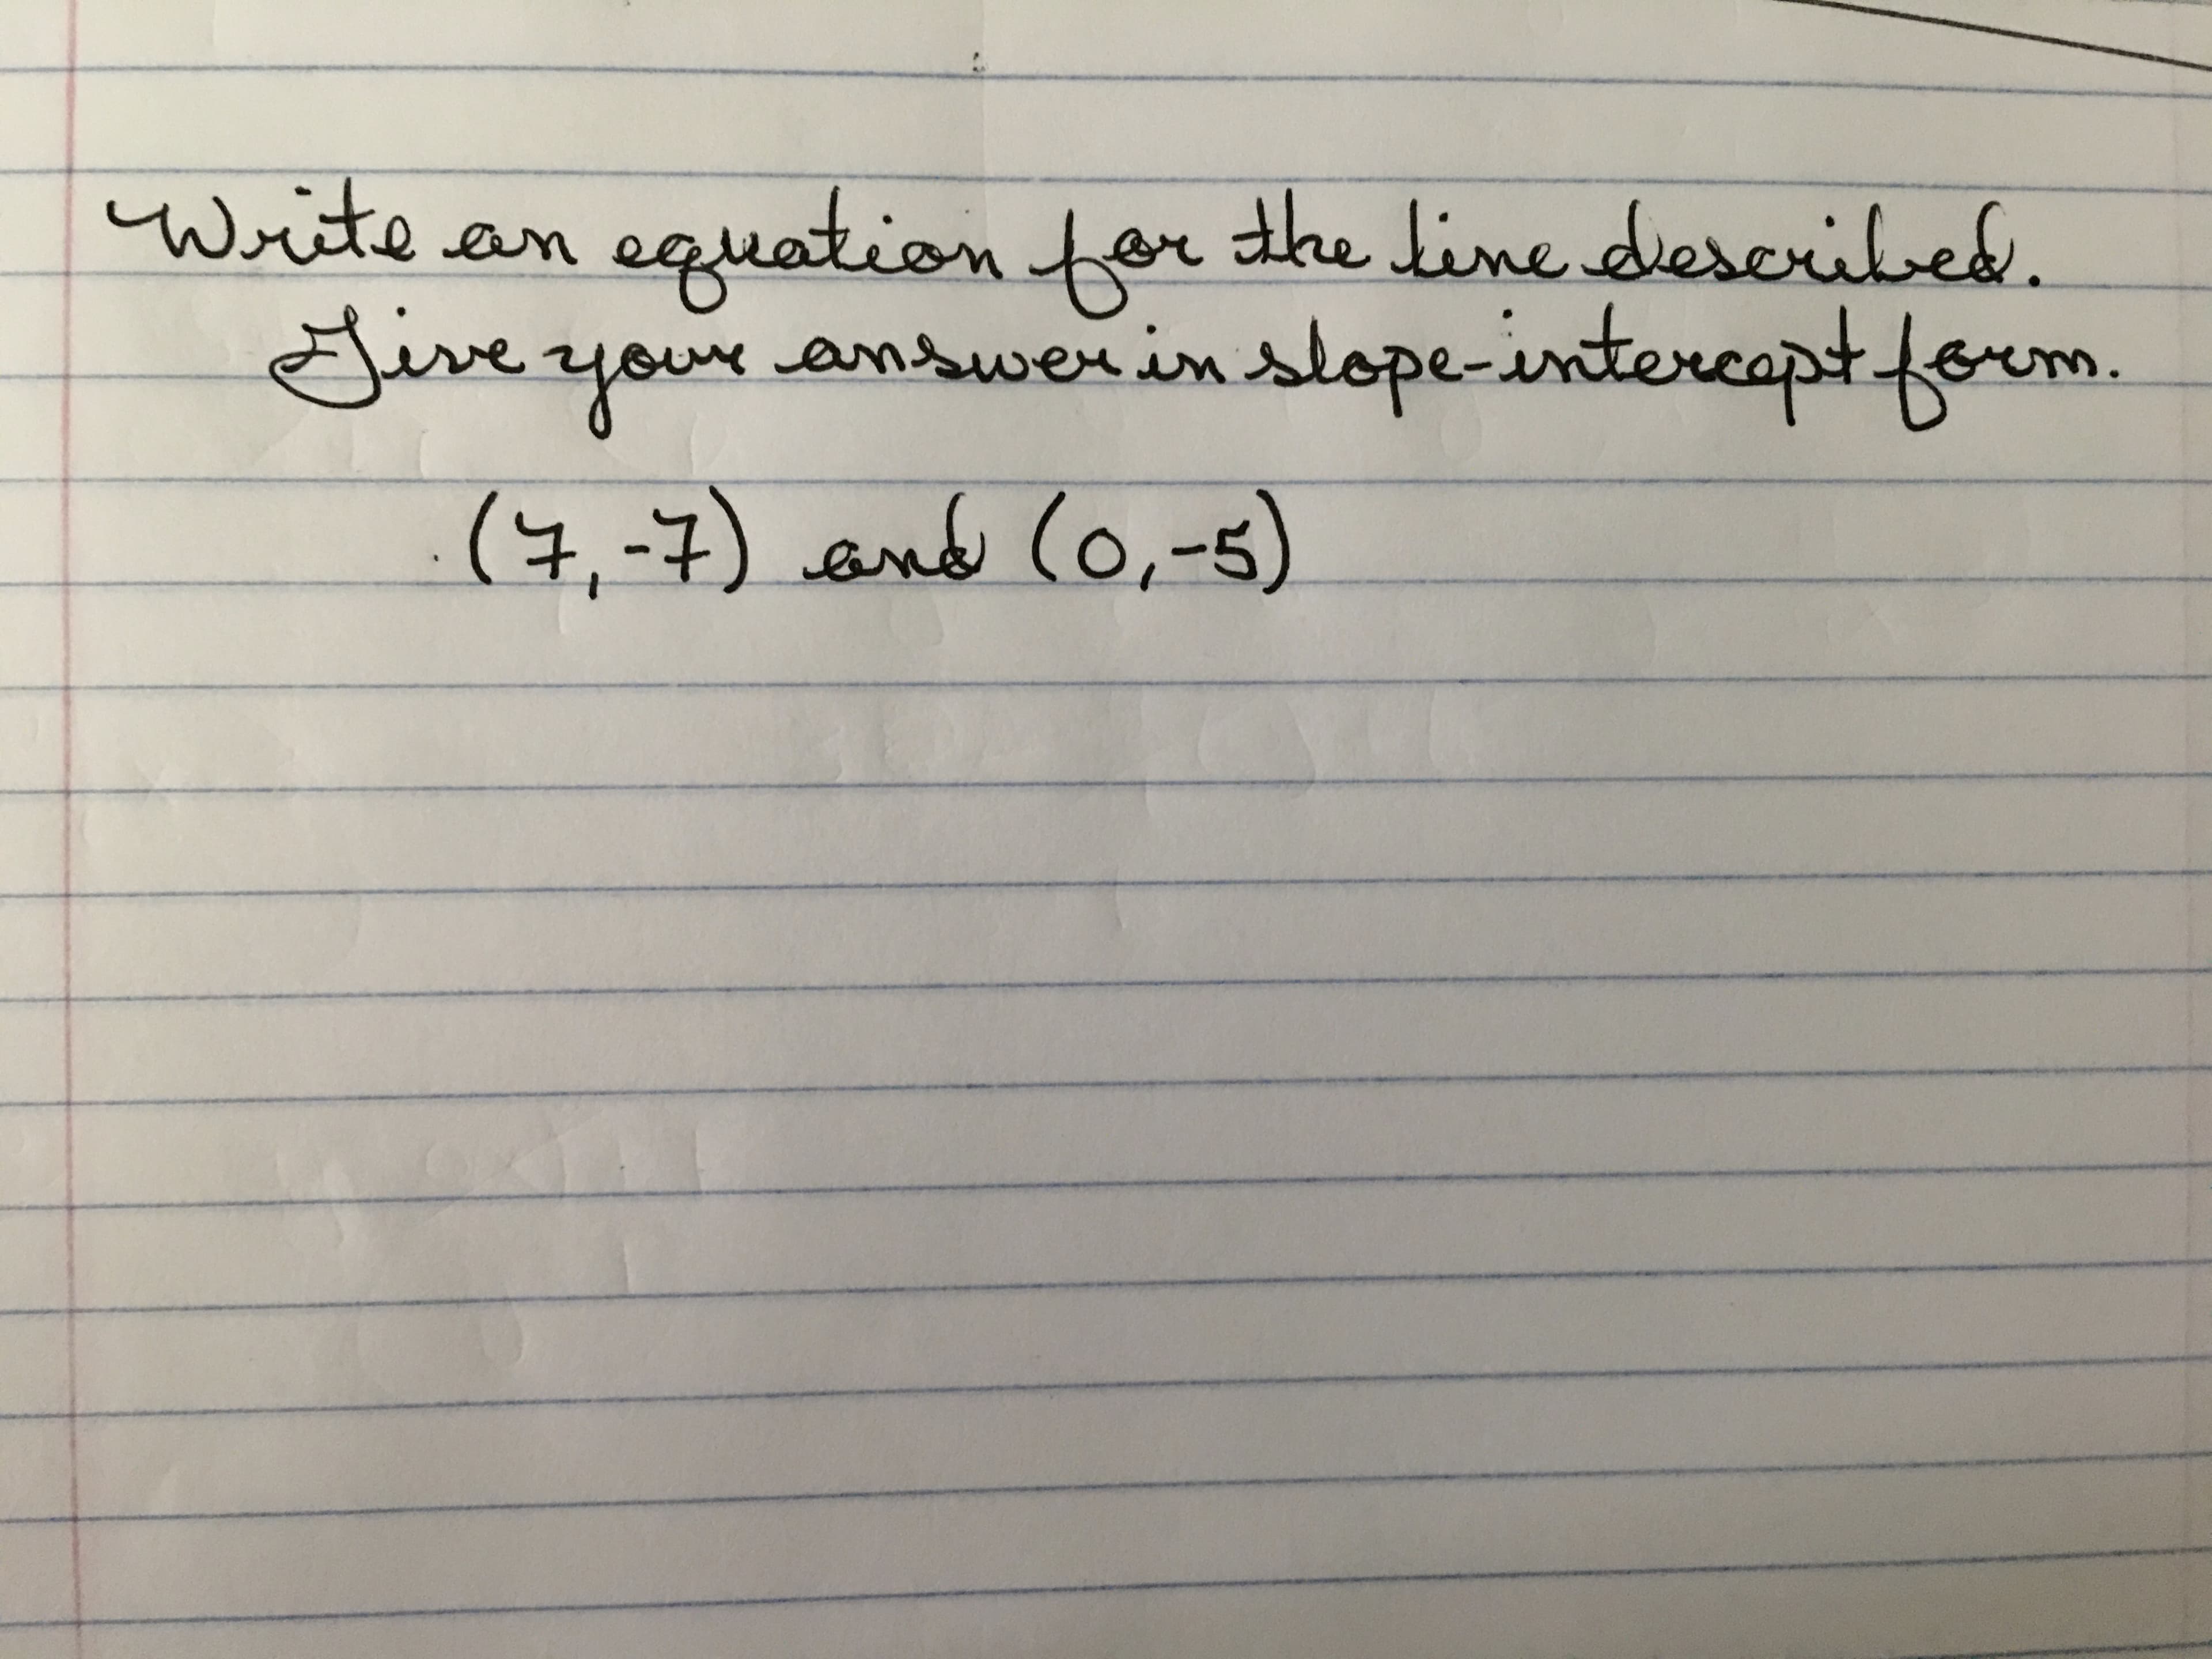 Write an equation for the line described.
Give your answer in slope-intercept form.
(7,-7) and (0,-5)